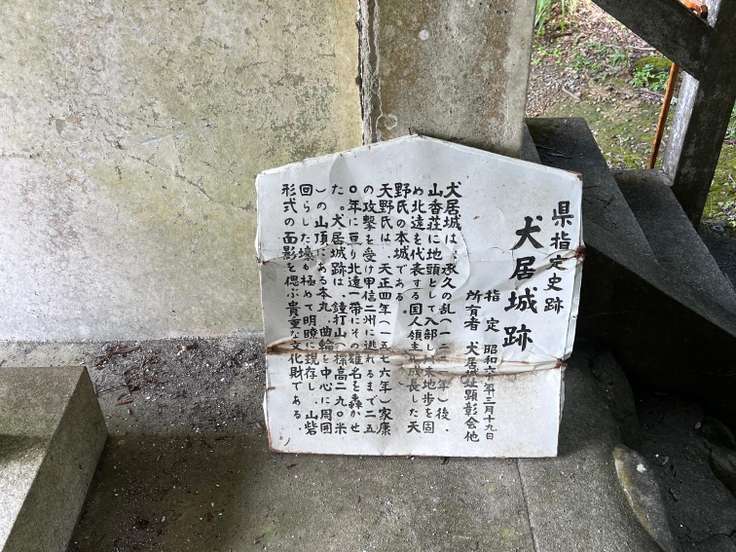 県指定史跡
犬居城跡
指定 昭和六一年三月十九日
所有者 犬居城址顕彰会他
犬居城は、承久の乱(一二二一年)後、
山香荘に地頭として入部し 来地歩を固
め北遠を代表する国人領主 成長した天
野氏の本城である。
天野氏は、天正四年(一五七六年)家康
の攻撃を受け甲信二州に逃れるまで二五
〇年に亘り北遠一帯にその雄名を轟かせ
た。犬居城跡は、鐘打山(標高二九〇米
)の山頂にある本丸、曲輪を中心に周囲
回らした壕も極めて明瞭に現存し、山砦
形式の面影を偲ぶ貴重な文化財である。